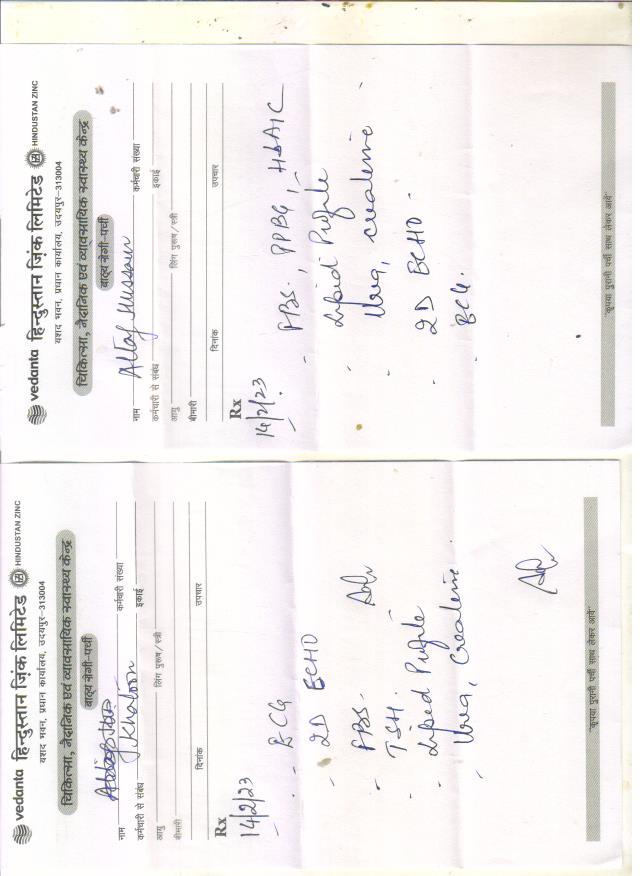 vedanta हिन्दुस्तान ज़िंक लिमिटेड HINDUSTAN ZINC
यशद भवन, प्रधान कार्यालय, उदयपुर-313004
चिकित्सा, नैदानिक एवं व्यावसायिक स्वास्थ्य केन्द्र
बाह्य रोगी-पर्ची
नाम Altaf Hussain कर्मचारी संख्या
कर्मचारी से संबंध इकाई
आयु लिंग पुरूष/स्त्री
बीमारी
दिनांक उपचार
Rx
14/2/23
- FBS, PPBG, HbA1C
- Lipid Profile
- Urea, Creatinine
- 2D ECHO
- ECG.
"कृपया पुरानी पर्ची साथ लेकर आवें"
vedanta हिन्दुस्तान ज़िंक लिमिटेड HINDUSTAN ZINC
यशद भवन, प्रधान कार्यालय, उदयपुर-313004
चिकित्सा, नैदानिक एवं व्यावसायिक स्वास्थ्य केन्द्र
बाह्य रोगी-पर्ची
नाम J. Khatoon कर्मचारी संख्या
कर्मचारी से संबंध इकाई
आयु लिंग पुरूष/स्त्री
बीमारी
दिनांक उपचार
Rx
14/2/23
- ECG
- 2D ECHO
- FBS.
- TSH.
- Lipid Profile
- Urea, Creatinine
"कृपया पुरानी पर्ची साथ लेकर आवें"